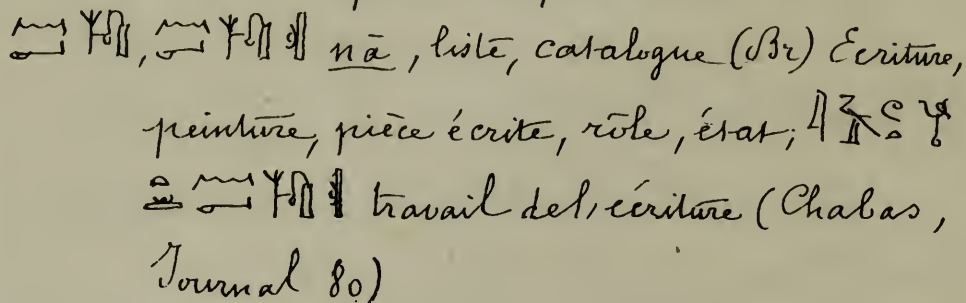 , nā, liste, catalogue (Br) Ecriture,
peinture, pièce écrite, rôle, état;
travail de l'écriture (Chabas,
Journal 80)